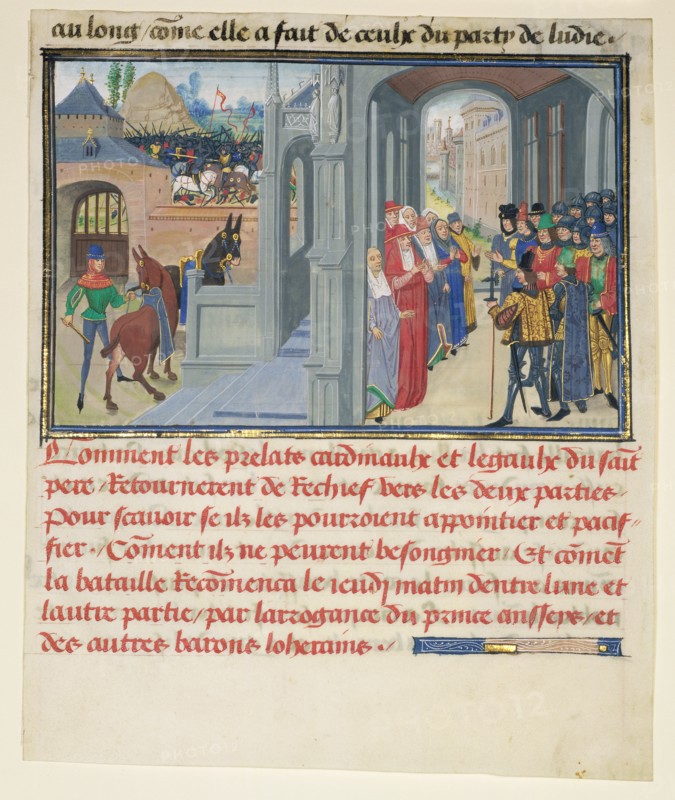 au long / cōme elle a fait de ceulx du party de ludie .
Comment les prelats cardinaulx et legaulx du saīt
pere / Retournerent de Rechief vers les deux parties /
pour scauoir se ilz les pourroient appointier et pacif-
fier . / Cōment ilz ne peurent besongnier / Et cōmēt
la bataille Recōmenca le ieudj matin dentre lune et
lautre partie / par larrogance du prince ansseys / et
des autres barons loherains . /